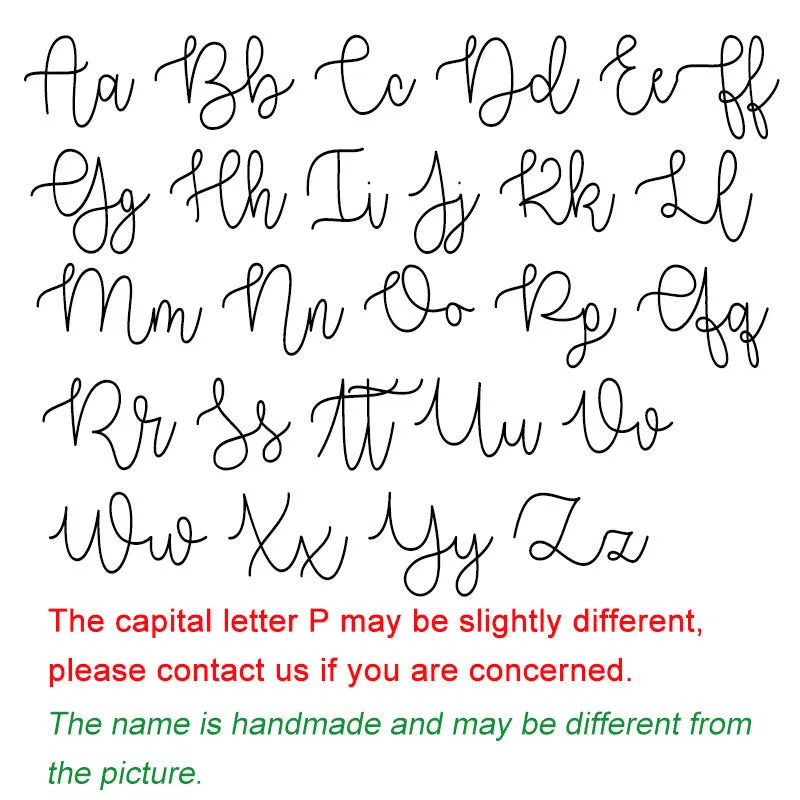 Aa Bb Cc Dd Ee Ff
Gg Hh Ii Jj Kk Ll
Mm Nn Oo Pp Qq
Rr Ss Tt Uu Vv
Ww Xx Yy Zz
The capital letter P may be slightly different,
please contact us if you are concerned.
The name is handmade and may be different from
the picture.